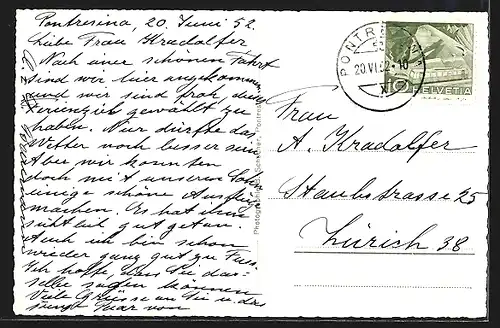 Pontresina, 20. Juni 52.
Liebe Frau Kradolfer
Nach einer schönen Fahrt
sind wir hier angekommen
und wir sind froh, dieses
Ferienziel gewählt zu
haben. Nur dürfte das
Wetter noch besser sein.
Aber wir konnten
doch mit unserem Sohn
einige schöne Ausflüge
machen. Es hat ihm
gut getan.
Auch ich bin schon
wieder ganz gut zu Fuss
Ich hoffe, dass Sie das-
selbe sagen können
Viele Grüsse an Sie u. das
junge Paar von
PONTRESINA
20.VI.52.-10
10
HELVETIA
Frau
A. Kradolfer
Staubstrasse 25
Zürich 38